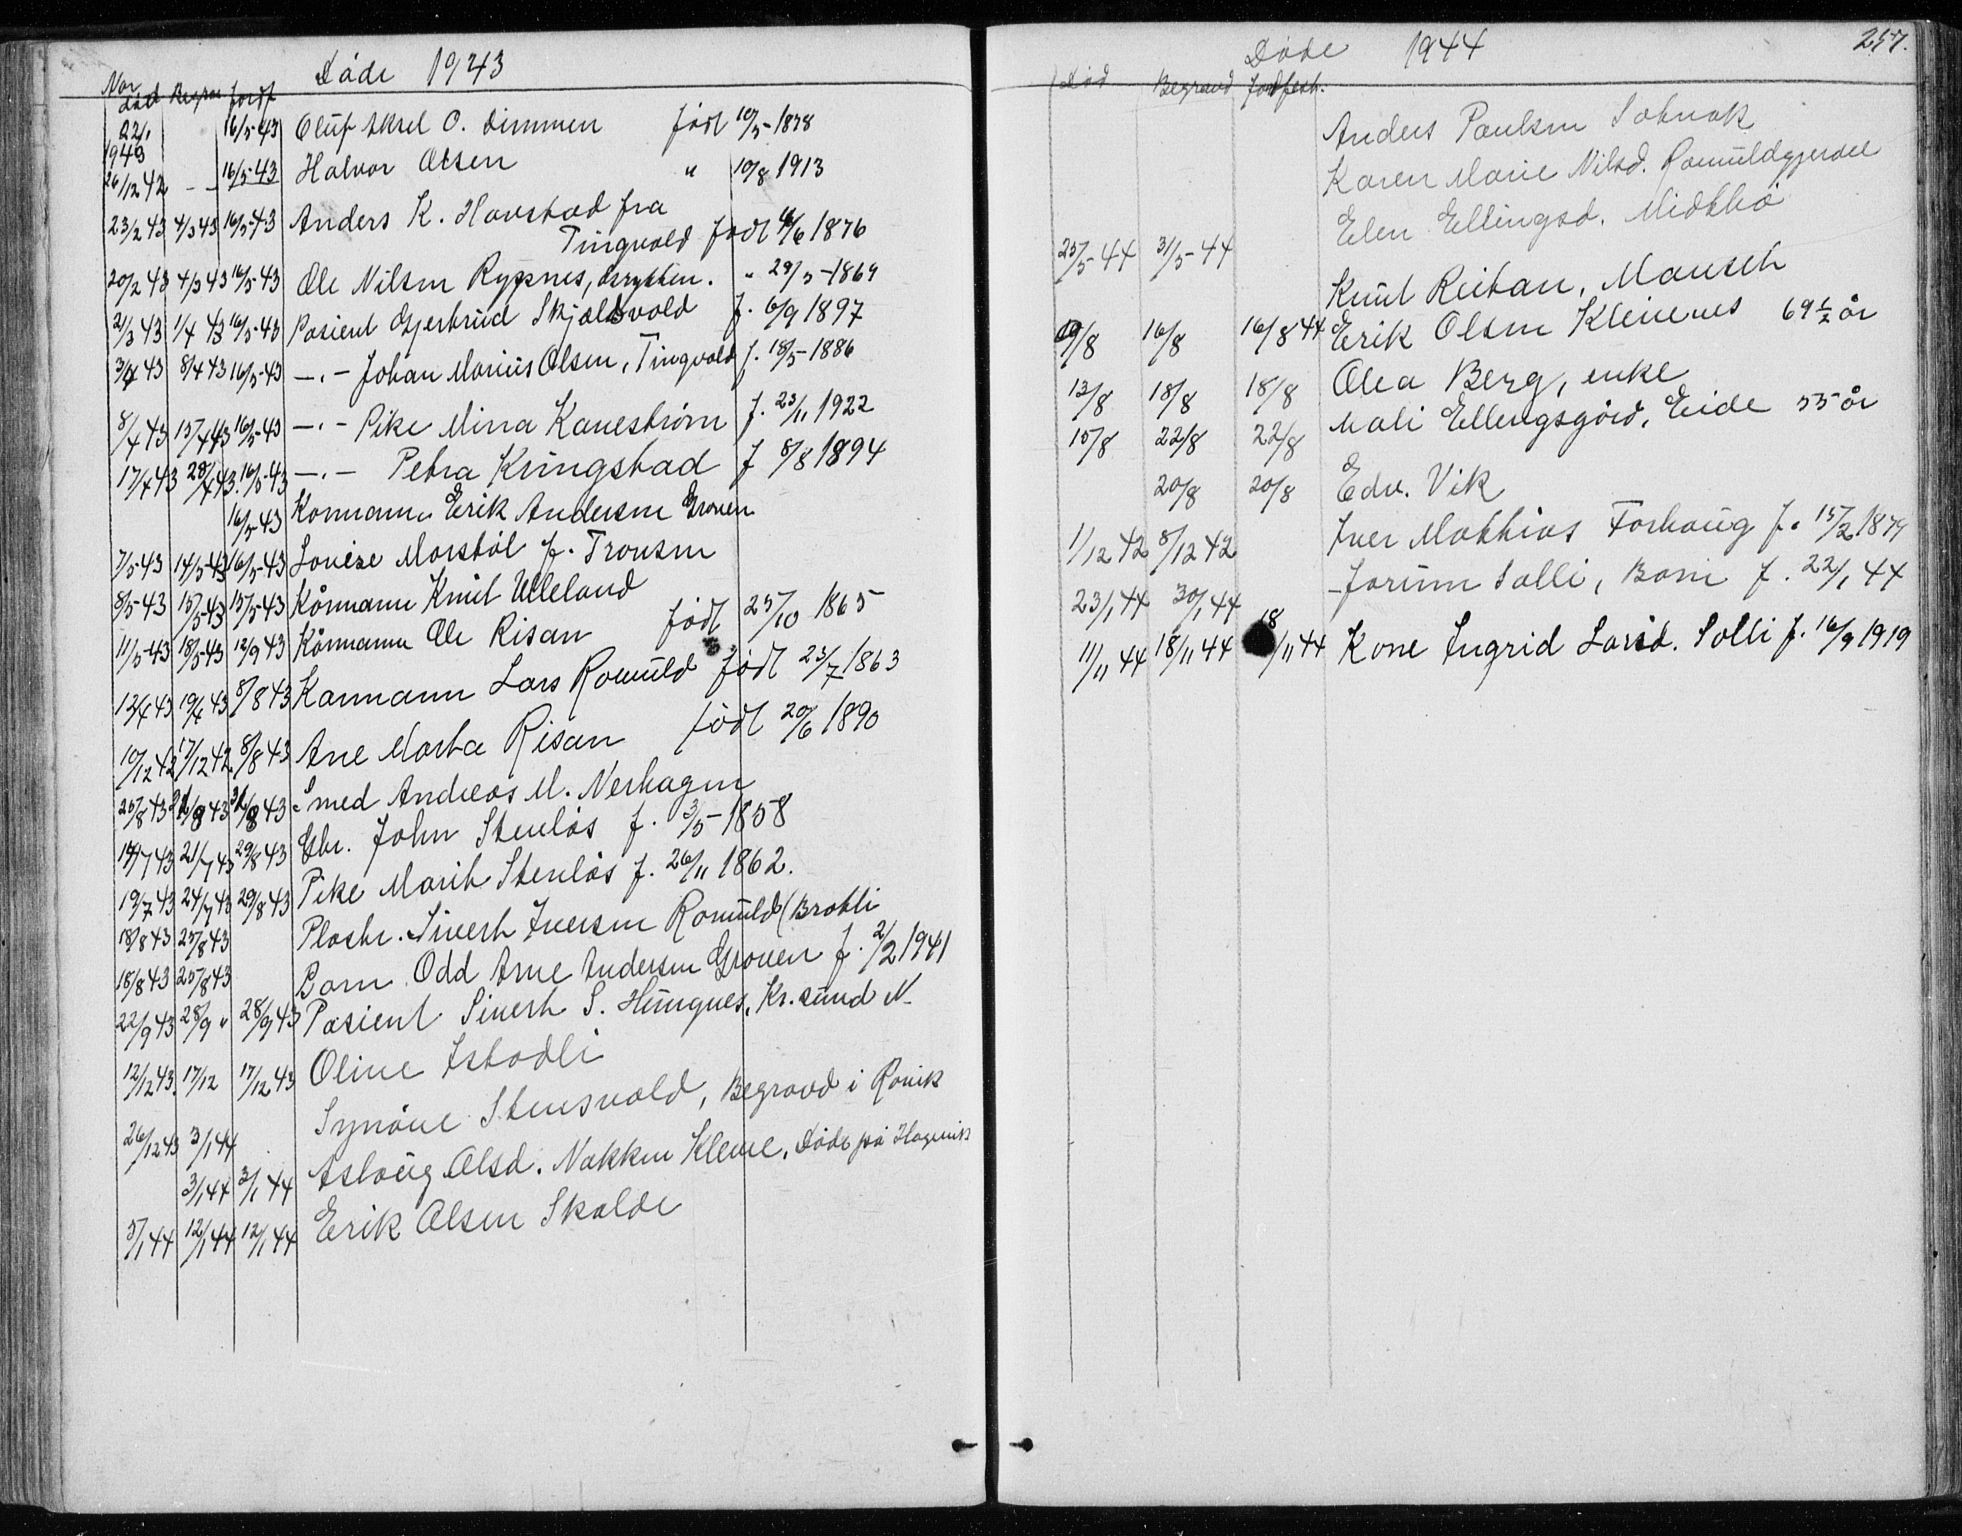 Døde 1943
Naar død Begrav jordf
22/1 1943 16/5-43 Oluf Aksel O. Dimmen født 10/5-1878
26/12 42 - - 16/5-43 Halvor Olsen " 10/8 1913
23/2 43 4/3 43 16/5-43 Anders K. Havstad fra
Tingvold født /6 1876
20/2 43 4/3 43 16/5-43 Ole Nilsen Rypsnes, . " 29/5-1869
21/3 43 1/4 43 16/5-43 Pasient Gjertrud Skjølsvold f. 6/9 1897
3/4 43 8/4 43 16/5-43 -"- Johan Marius Olsen, Tingvold f. 18/5-1886
8/4 43 15/4 43 16/5-43 -"- Pike Mina Kanestrøm f. 23/11 1922
17/4 43 28/4 43. 16/5-43 -"- Petra Kringstad f 8/8 1894
16/5 43 Kormann Erik Andersen Groven
7/5-43 14/5-43 16/5-43 Lovise Morstøl f. Tronsen
8/5-43 15/5-43 15/5-43 Kårmann Knut Ulleland
11/5-43 18/5-43 12/9 43 Kårmann Ole Risan født 25/10 1865
12/4 43 19/4 43 8/8 43 Karmann Lars Romuld født 23/7 1863
10/12 42 17/12 42 8/8 43 Ane Marta Risan født 20/6 1890
25/8 43 /8 43 31/8 43 Smed Andreas M. Nerhagen
14/7 43 21/7 43 29/8 43 Gbr. John Stenløs f. 3/5-1858
19/7 43 24/7 43 29/8 43 Pike Marit Stenløs f. 26/11 1862.
18/8 43 25/8 43 Plasbr. Sivert Iversen Romuld (Brotli
18/8 43 25/8 43 Barn Odd Arne Andersen Groven f. 2/2 1941
22/9 43 28/9 " 28/9 43 Pasient Sivert S. Hungnes, Kr.sund N
12/12 43. 17/12 17/12 43 Oline Istadli
Synøve Stensvold, Begravd i Røvik
26/12 43 3/1 44
3/1 44 3/1 44 Aslaug Olsd. Nakken Kleive, Døde på Hagevik
5/1 44 12/1 44 12/1 44 Erik Olsen Skalde
Døde 1944 257.
Død Begravd Jordfest.
Anders Paulsen Solnok
Karen Marie Nilsd. Romuldgjerdet
Elen Ellingsd. Midthø
25/5-44 31/5-44
Knut Reitan, Mauset
/8 16/8 16/8 44 Erik Olsen Kleivenes 69 1/2 år
13/8 18/8 18/8 Olea Berg, enke
15/8 22/8 22/8 Mali Ellengsgård, Eide 55 år
20/8 20/8 Edv. Vik
1/12 42 8/12 42 Iver Mathias Forhaug f. 15/2 1879
23/1 44 30/1 44 Jorunn Solli, Barn f. 22/1 44
11/11 44 18/11 44 18/11 44 Kone Ingrid Larsd. Solli f. 16/9 1919